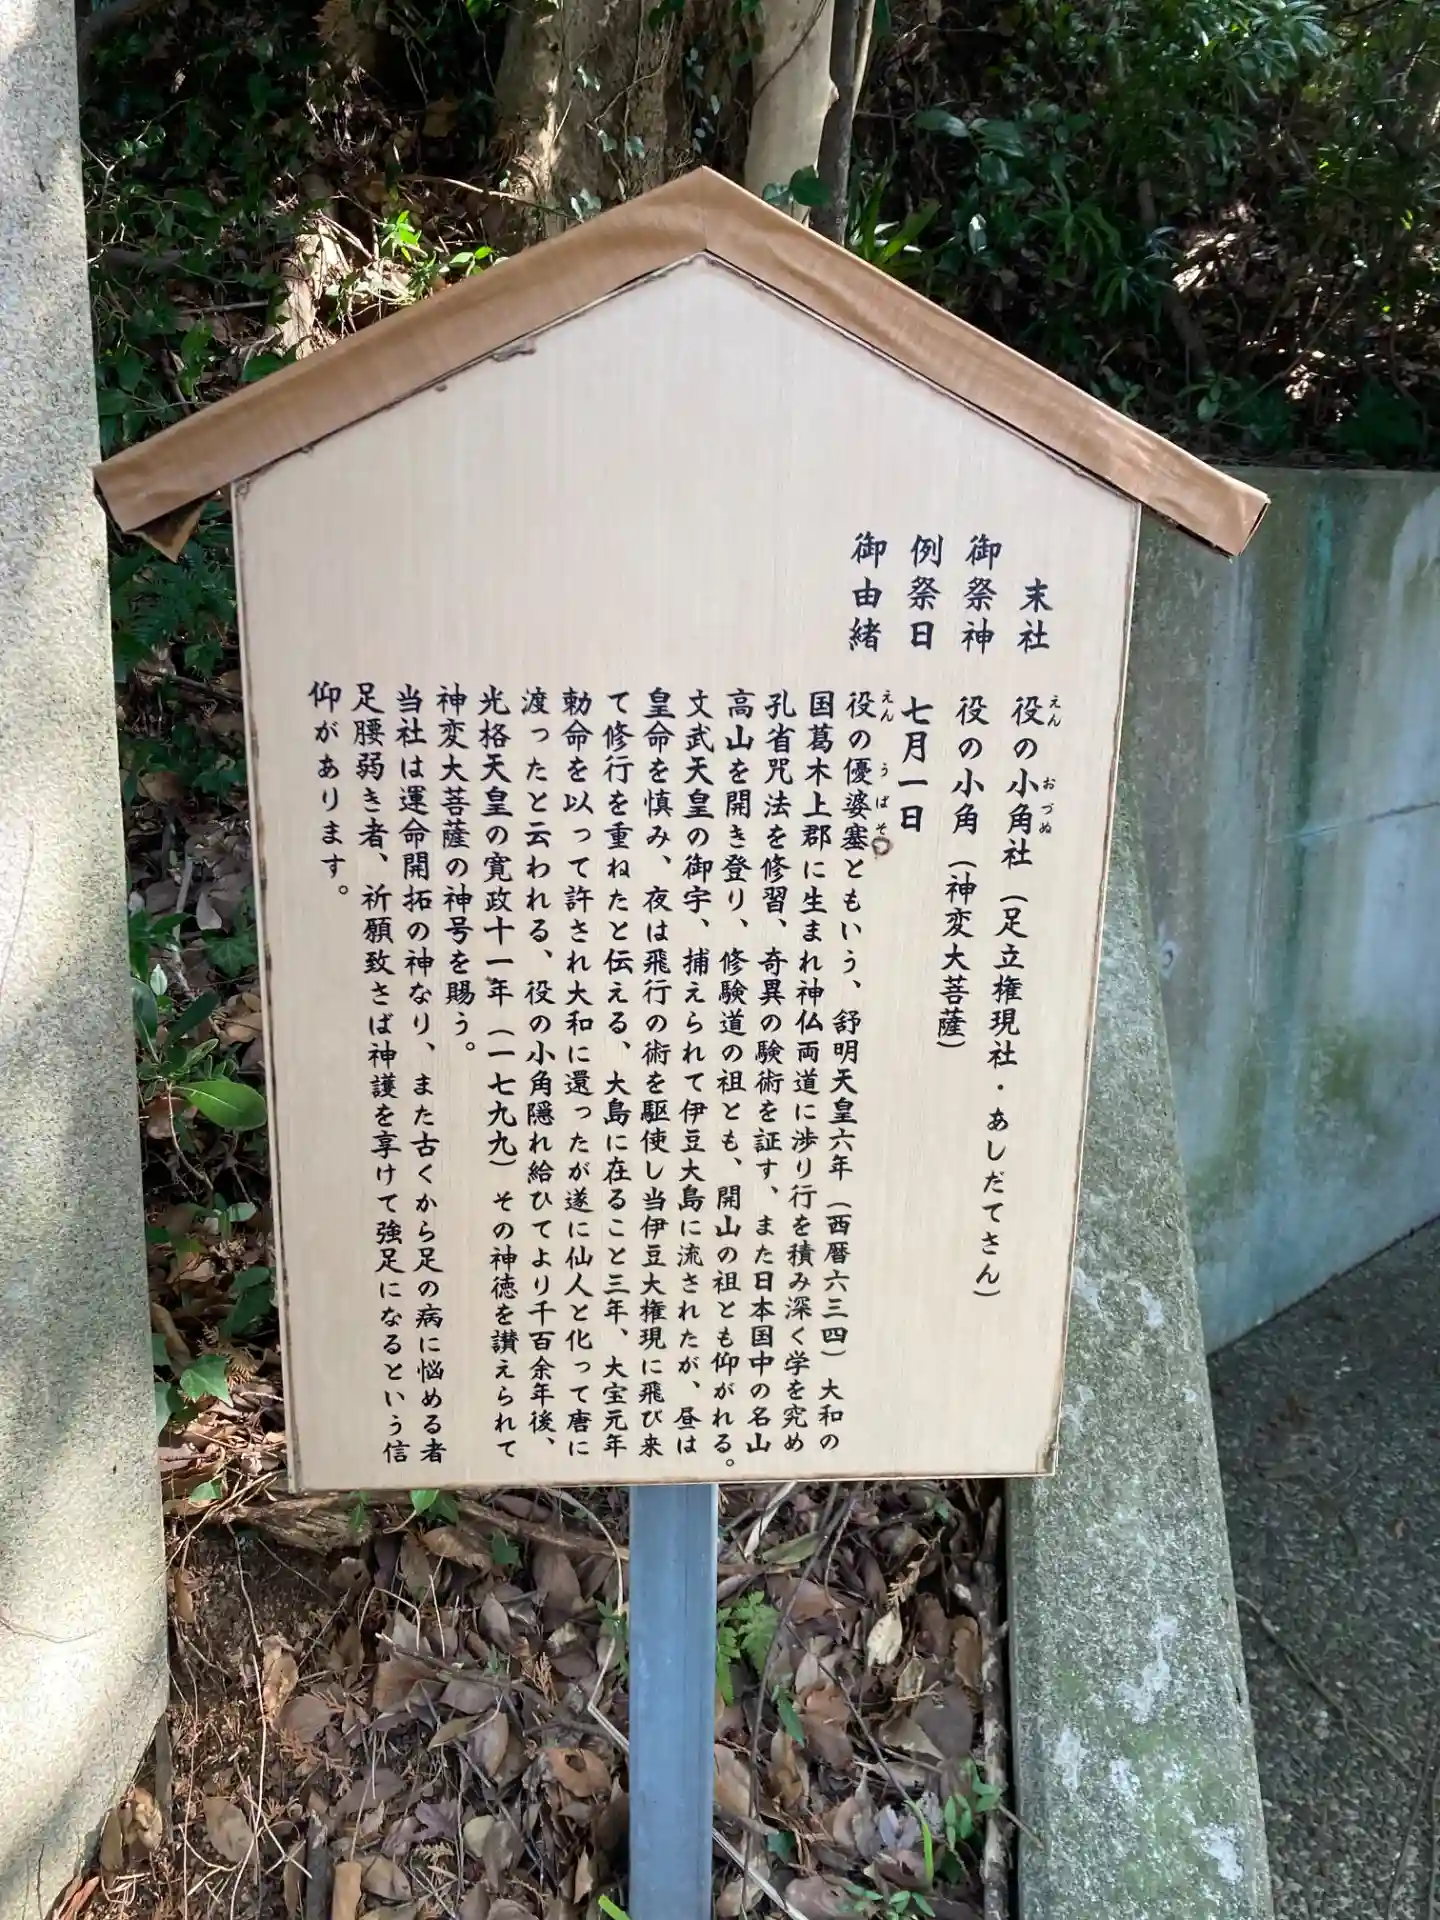 末社　役の小角社（足立権現社・あしだてさん）
えん　おづぬ
御祭神　役の小角（神変大菩薩）
例祭日　七月一日
御由緒　役の優婆塞ともいう、舒明天皇六年（西暦六三四）大和の
えん　うばそ
国葛木上郡に生まれ神仏両道に渉り行を積み深く学を究め
孔省咒法を修習、奇異の験術を証す、また日本国中の名山
高山を開き登り、修験道の祖とも、開山の祖とも仰がれる。
文武天皇の御宇、捕えられて伊豆大島に流されたが、昼は
皇命を慎み、夜は飛行の術を駆使し当伊豆大権現に飛び来
て修行を重ねたと伝える、大島に在ること三年、大宝元年
勅命を以って許され大和に還ったが遂に仙人と化って唐に
渡ったと云われる、役の小角隠れ給ひてより千百余年後、
光格天皇の寛政十一年（一七九九）その神徳を讃えられて
神変大菩薩の神号を賜う。
当社は運命開拓の神なり、また古くから足の病に悩める者
足腰弱き者、祈願致さば神護を享けて強足になるという信
仰があります。